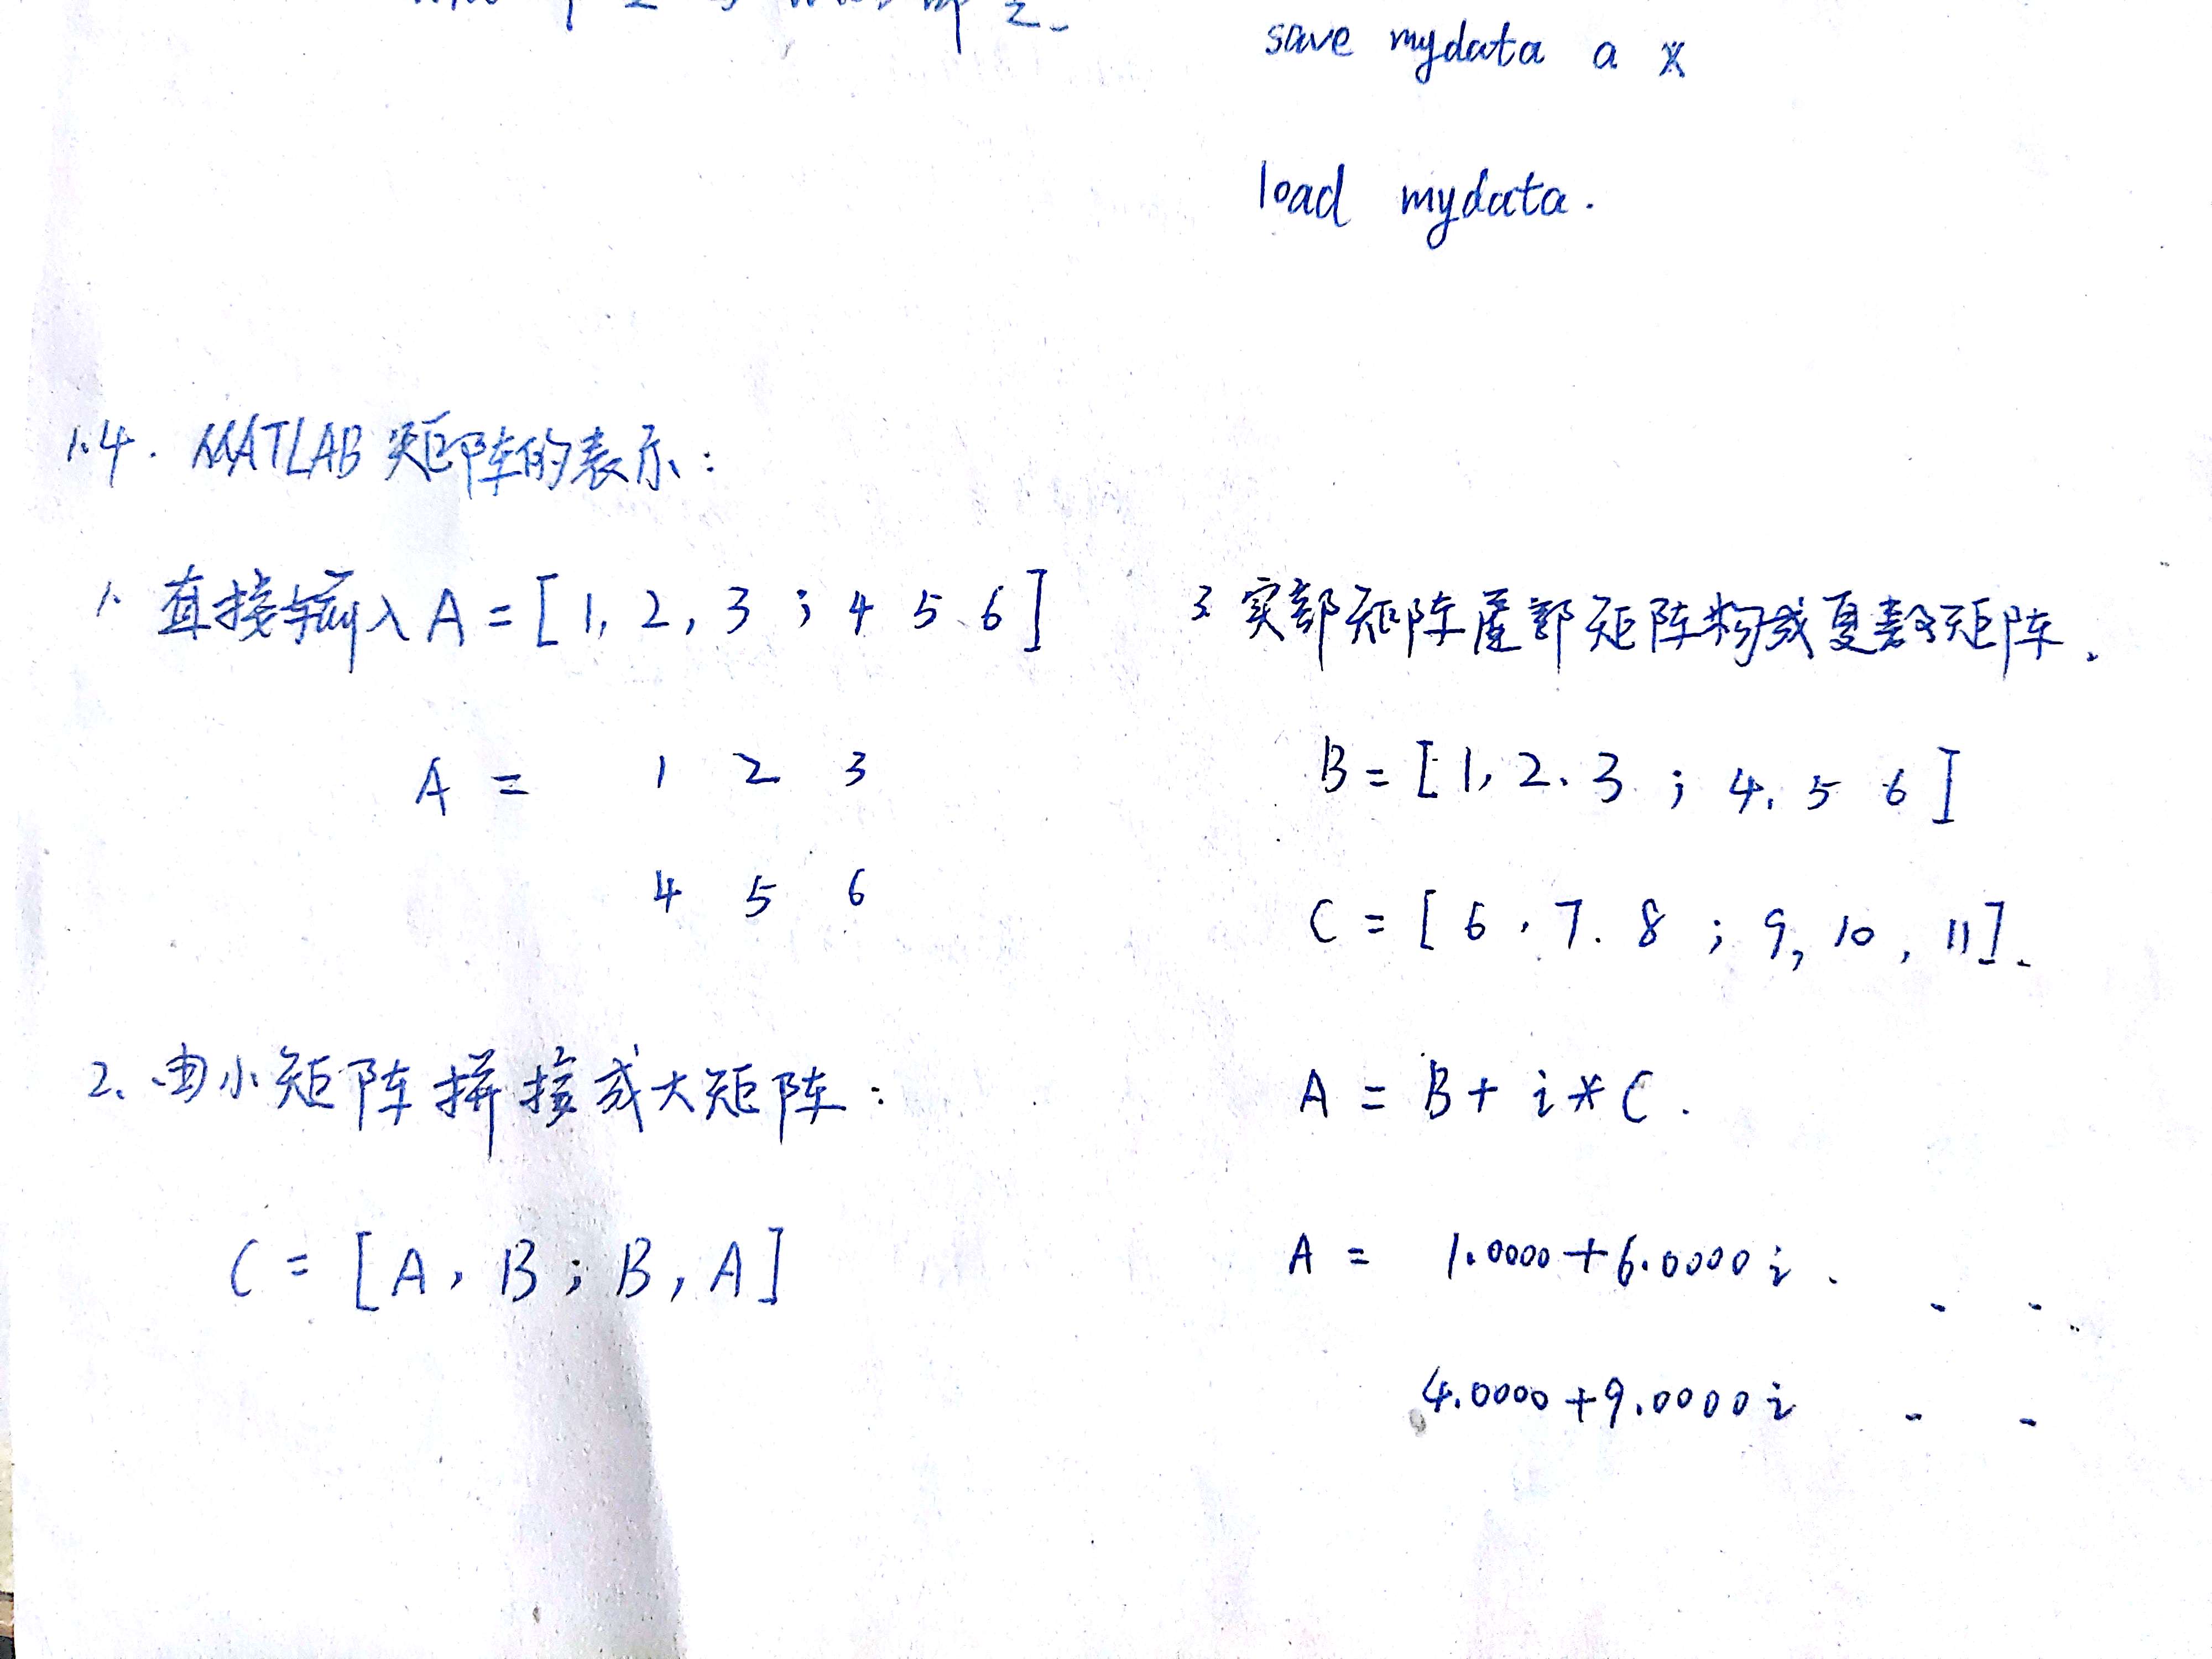 save mydata a x
load mydata.
1.4. MATLAB 矩阵的表示:
1. 直接输入 A = [1, 2, 3 ; 4 5 6]
A = 1 2 3
4 5 6
2. 由小矩阵拼接成大矩阵:
C = [A, B; B, A]
3 实部矩阵虚部矩阵构成复数矩阵.
B = [1, 2. 3 ; 4. 5 6]
C = [6, 7. 8 ; 9, 10, 11].
A = B + i*C.
A = 1.0000+6.0000i . - -
4.0000+9.0000i - -